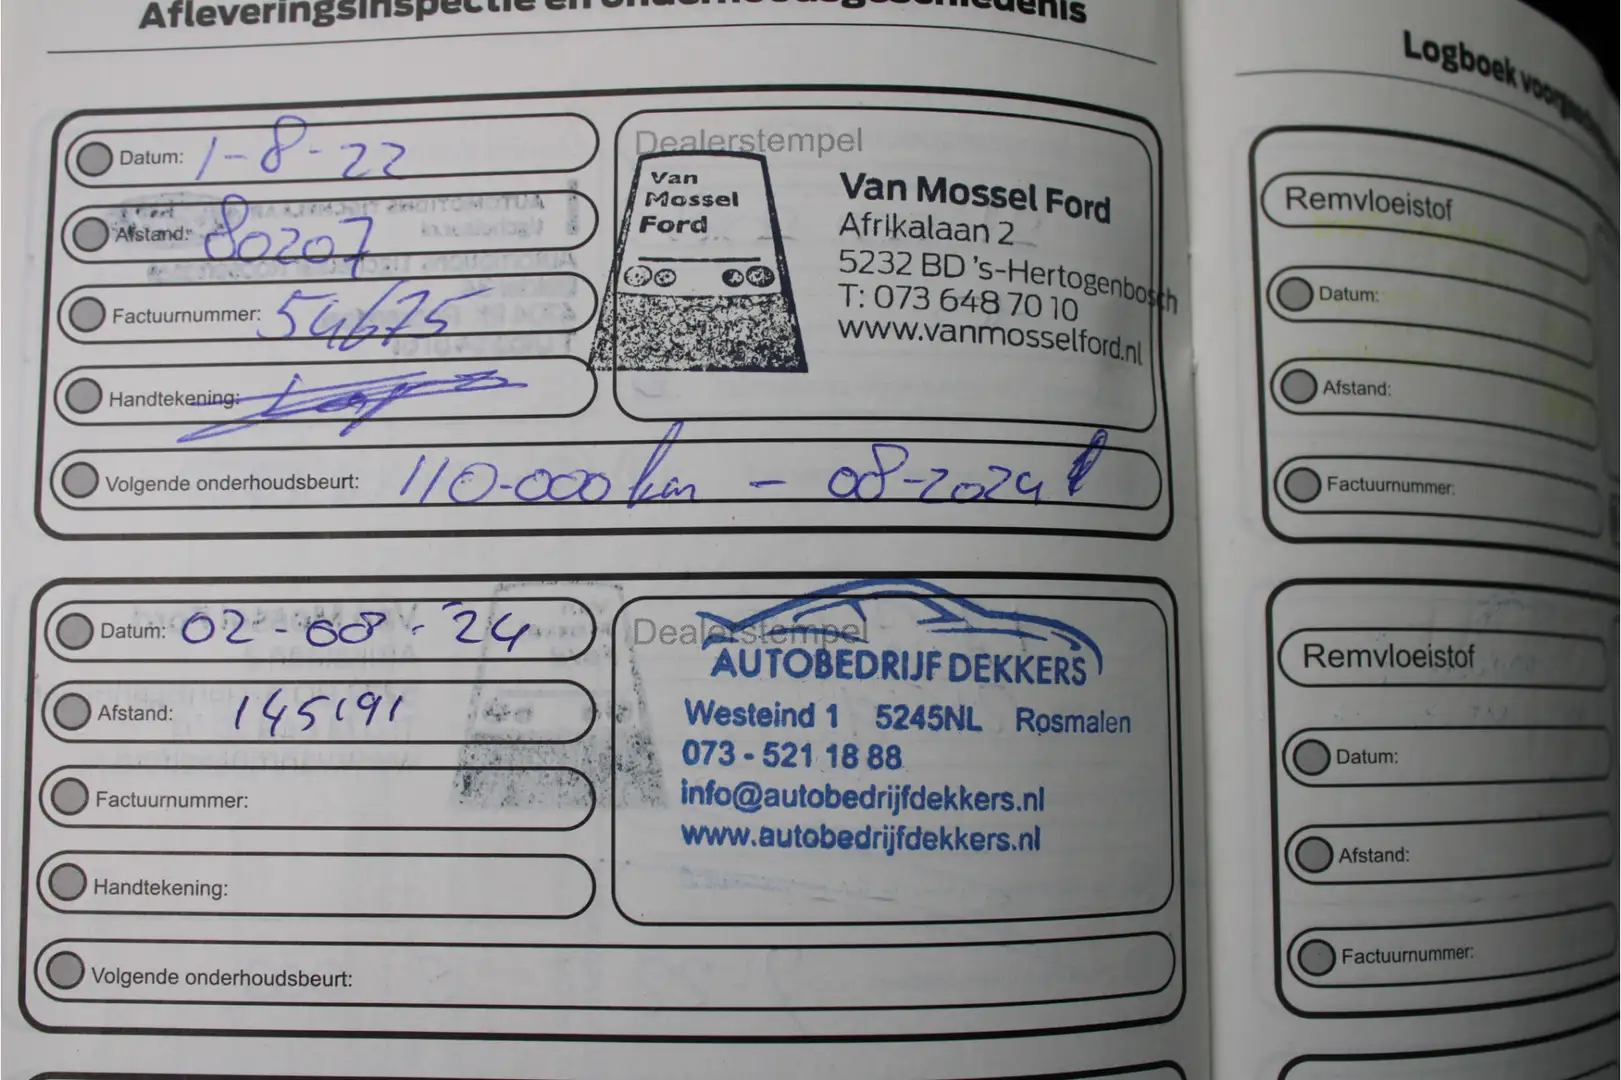 Afleveringsinspectie en onderhoudsgeschiedenis
Datum: 1-8-22
Afstand: 80207
Factuurnummer: 54675
Handtekening:
Volgende onderhoudsbeurt: 110.000 km - 08-2024
Dealerstempel
Van
Mossel
Ford
Van Mossel Ford
Afrikalaan 2
5232 BD 's-Hertogenbosch
T: 073 648 70 10
www.vanmosselford.nl
Datum: 02-08-24
Afstand: 145191
Factuurnummer:
Handtekening:
Volgende onderhoudsbeurt:
Dealerstempel
AUTOBEDRIJF DEKKERS
Westeind 1 5245NL Rosmalen
073 - 521 18 88
info@autobedrijfdekkers.nl
www.autobedrijfdekkers.nl
Logboek
Remvloeistof
Datum:
Afstand:
Factuurnummer:
Remvloeistof
Datum:
Afstand:
Factuurnummer: